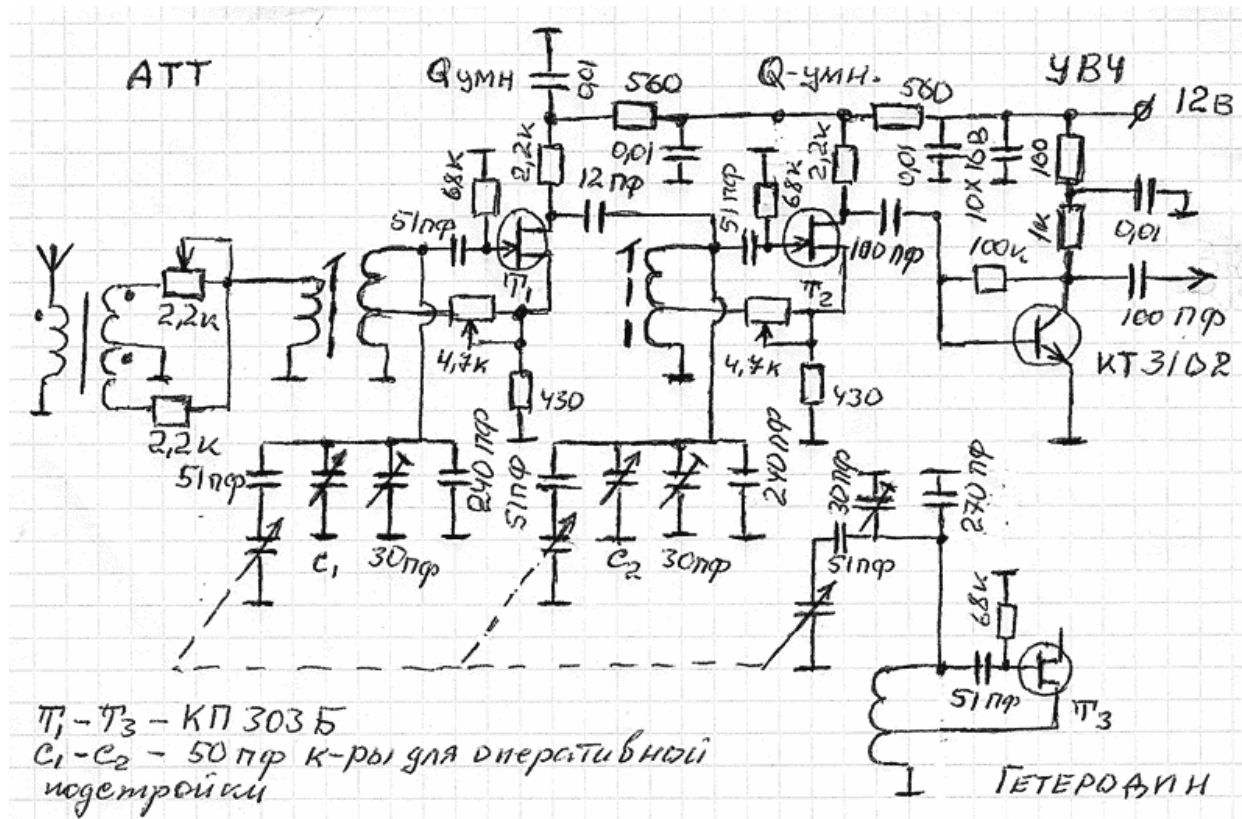 АТТ
Qумн
0,01
560
Q-умн.
560
УВЧ
12В
2,2к
0,01
68к
12 пф
51пф
68к
2,2к
0,01
10х16В
160
0,01
1к
51пф
100пф
100к
Т1
Т2
2,2к
4,7к
4,7к
100 пф
КТ3102
430
430
2,2к
51пф
240пф
51пф
240пф
30пф
270пф
С1
30пф
С2
30пф
51пф
68к
51пф
Т3
Т1-Т3 – КП 303 Б
С1-С2 – 50 пф к-ры для оперативной
подстройки
Гетеродин